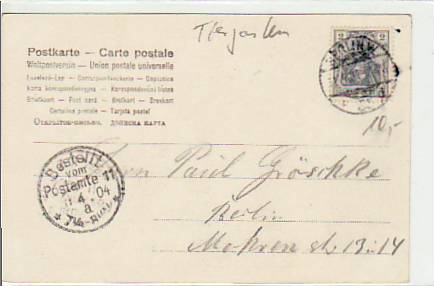 Postkarte – Carte postale
Weltpostverein – Union postale universelle
Levelező-Lap – Correspondenzkarte – Dopisnice
Karta korespondencyjna – Korespondenční lístek
Briefkort – Post card – Brefkort – Brevkort
Cartolina postale – Tarjeta postal
Открытое письмо. Дописна карта
Tiergarten
2 2
BERLIN W
10,-
Bestellt
vom
Postamte 11
4 04
a
7¼-8½V
Herrn Paul Gröschke
Berlin
Mohrenstr 13.14